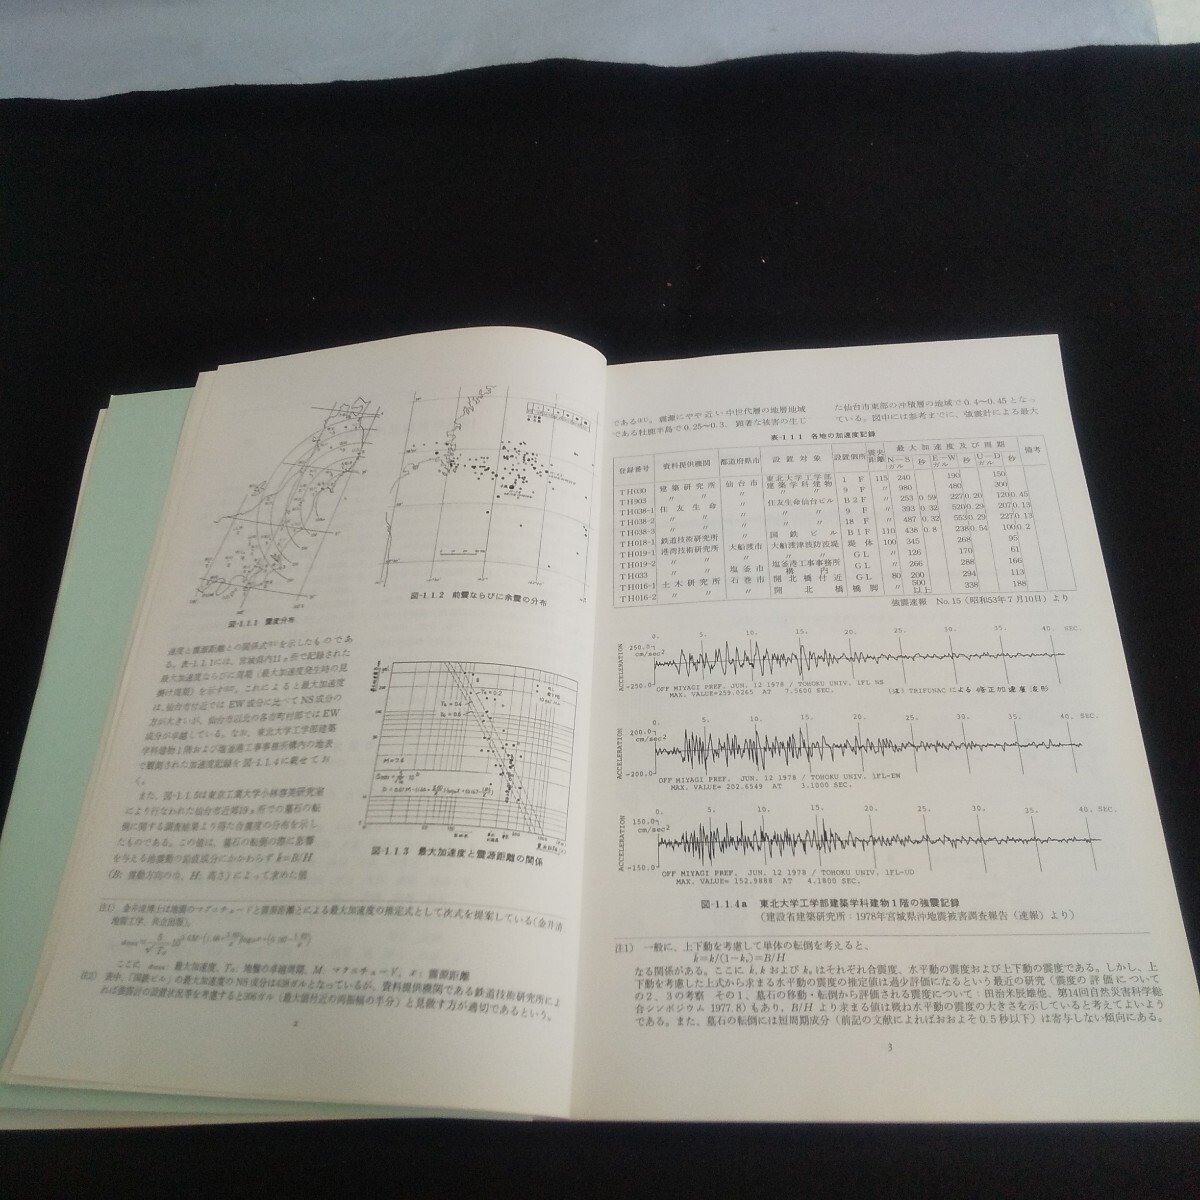 図-1.1.1 震度分布
図-1.1.2 前震ならびに余震の分布
速度と震源距離との関係式を示したものであ
る。表-1.1.1には、宮城県内11ヶ所で記録された
最大加速度ならびに周期（最大加速度発生時の見
掛け周期）を示す。これによると最大加速度
は、仙台市付近では EW 成分に比べて NS 成分の
方が大きいが、仙台市以北の各市町村部では EW
成分が卓越している。なお、東北大学工学部建築
学科建物1階および塩釜港工事事務所構内の地表
で観測された加速度記録を図-1.1.4に載せてお
く。
また、図-1.1.5は東京工業大学小林啓美研究室
により行なわれた仙台市近郊19ヶ所での墓石の転
倒に関する調査結果より得た合震度の分布を示し
たものである。この値は、墓石の転倒の際に影響
を与える地震動の鉛直成分にかかわらず k=B/H
(B: 振動方向の巾、H: 高さ) によって求めた値
M=7.4
図-1.1.3 最大加速度と震源距離の関係
(注1) 金井清博士は地震のマグニチュードと震源距離とによる最大加速度の推定式として次式を提案している (金井清
地震工学、共立出版)。
ここに 最大加速度、T₀: 地盤の卓越周期、M: マグニチュード、x: 震源距離
(注2) 表中、「国鉄ビル」の最大加速度のNS成分は438ガルとなっているが、資料提供機関である鉄道技術研究所によ
れば強震計の設置状況等を考慮すると206ガル（最大値付近の両振幅の半分）と見做す方が適切であるという。
2
である(注1)。震源にやや近い中世代層の地層地域
である牡鹿半島で0.25~0.3、顕著な被害の生じ
た仙台市東部の沖積層の地域で0.4~0.45となっ
ている。図中には参考までに、強震計による最大
表-1.1.1 各地の加速度記録
登録番号 資料提供機関 都道府県市 設置対象 設置個所 震央距離 最大加速度及び周期 備考
N-S ガル 秒 E-W ガル 秒 U-D ガル 秒
TH030 建築研究所 仙台市 東北大学工学部建築学科建物 1F 115 240 190 150
TH903 〃 〃 〃 〃 9F 〃 980 480 300
TH038-1 住友生命 〃 住友生命仙台ビル B2F 〃 253 0.59 227 0.20 120 0.45
TH038-2 〃 〃 〃 〃 9F 〃 393 0.32 520 0.29 207 0.13
TH038-3 〃 〃 〃 〃 18F 〃 487 0.32 553 0.29 227 0.13
TH018-1 鉄道技術研究所 〃 国鉄ビル B1F 110 438 0.8 238 0.54 100 0.2
TH019-1 港湾技術研究所 大船渡市 大船渡津波防波堤 堤体 100 345 268 95
TH019-2 〃 〃 〃 GL 〃 126 170 61
TH033 〃 塩釜市 塩釜港工事事務所構内 GL 〃 266 288 166
TH016-1 土木研究所 石巻市 開北橋付近 GL 80 200 294 113
TH016-2 〃 〃 〃 開北橋 橋脚 〃 500以上 338 188
強震速報 No.15（昭和53年7月10日）より
0. 5. 10. 15. 20. 25. 30. 35. 40. SEC.
ACCELERATION
250.0
cm/sec²
-250.0
OFF MIYAGI PREF. JUN. 12 1978 / TOHOKU UNIV. 1FL NS
MAX. VALUE=259.0265 AT 7.5600 SEC.
(注) TRIFUNACによる修正加速度波形
0. 5. 10. 15. 20. 25. 30. 35. 40. SEC.
ACCELERATION
200.0
cm/sec²
-200.0
OFF MIYAGI PREF. JUN. 12 1978 / TOHOKU UNIV. 1FL-EW
MAX. VALUE= 202.8549 AT 3.1000 SEC.
0. 5. 10. 15. 20. 25. 30. 35. 40. SEC.
ACCELERATION
150.0
cm/sec²
-150.0
OFF MIYAGI PREF. JUN. 12 1978 / TOHOKU UNIV. 1FL-UD
MAX. VALUE= 152.9888 AT 4.1800 SEC.
図-1.1.4a 東北大学工学部建築学科建物1階の強震記録
（建設省建築研究所：1978年宮城県沖地震被害調査報告（速報）より）
(注1) 一般に、上下動を考慮して単体の転倒を考えると、
k=k/(1-kᵥ)=B/H
なる関係がある。ここに k, k および kᵥ はそれぞれ合震度、水平動の震度および上下動の震度である。しかし、上
下動を考慮した上式から求まる水平動の震度の推定値は過少評価になるという最近の研究（震度の評価について
の2、3の考察 その1、墓石の移動・転倒から評価される震度について：田治米辰雄他、第14回自然災害科学総
合シンポジウム 1977.8）もあり、B/H より求まる値は概ね水平動の震度の大きさを示していると考えてよいよう
である。また、墓石の転倒には短周期成分（前記の文献によればおおよそ0.5秒以下）は寄与しない傾向にある。
3